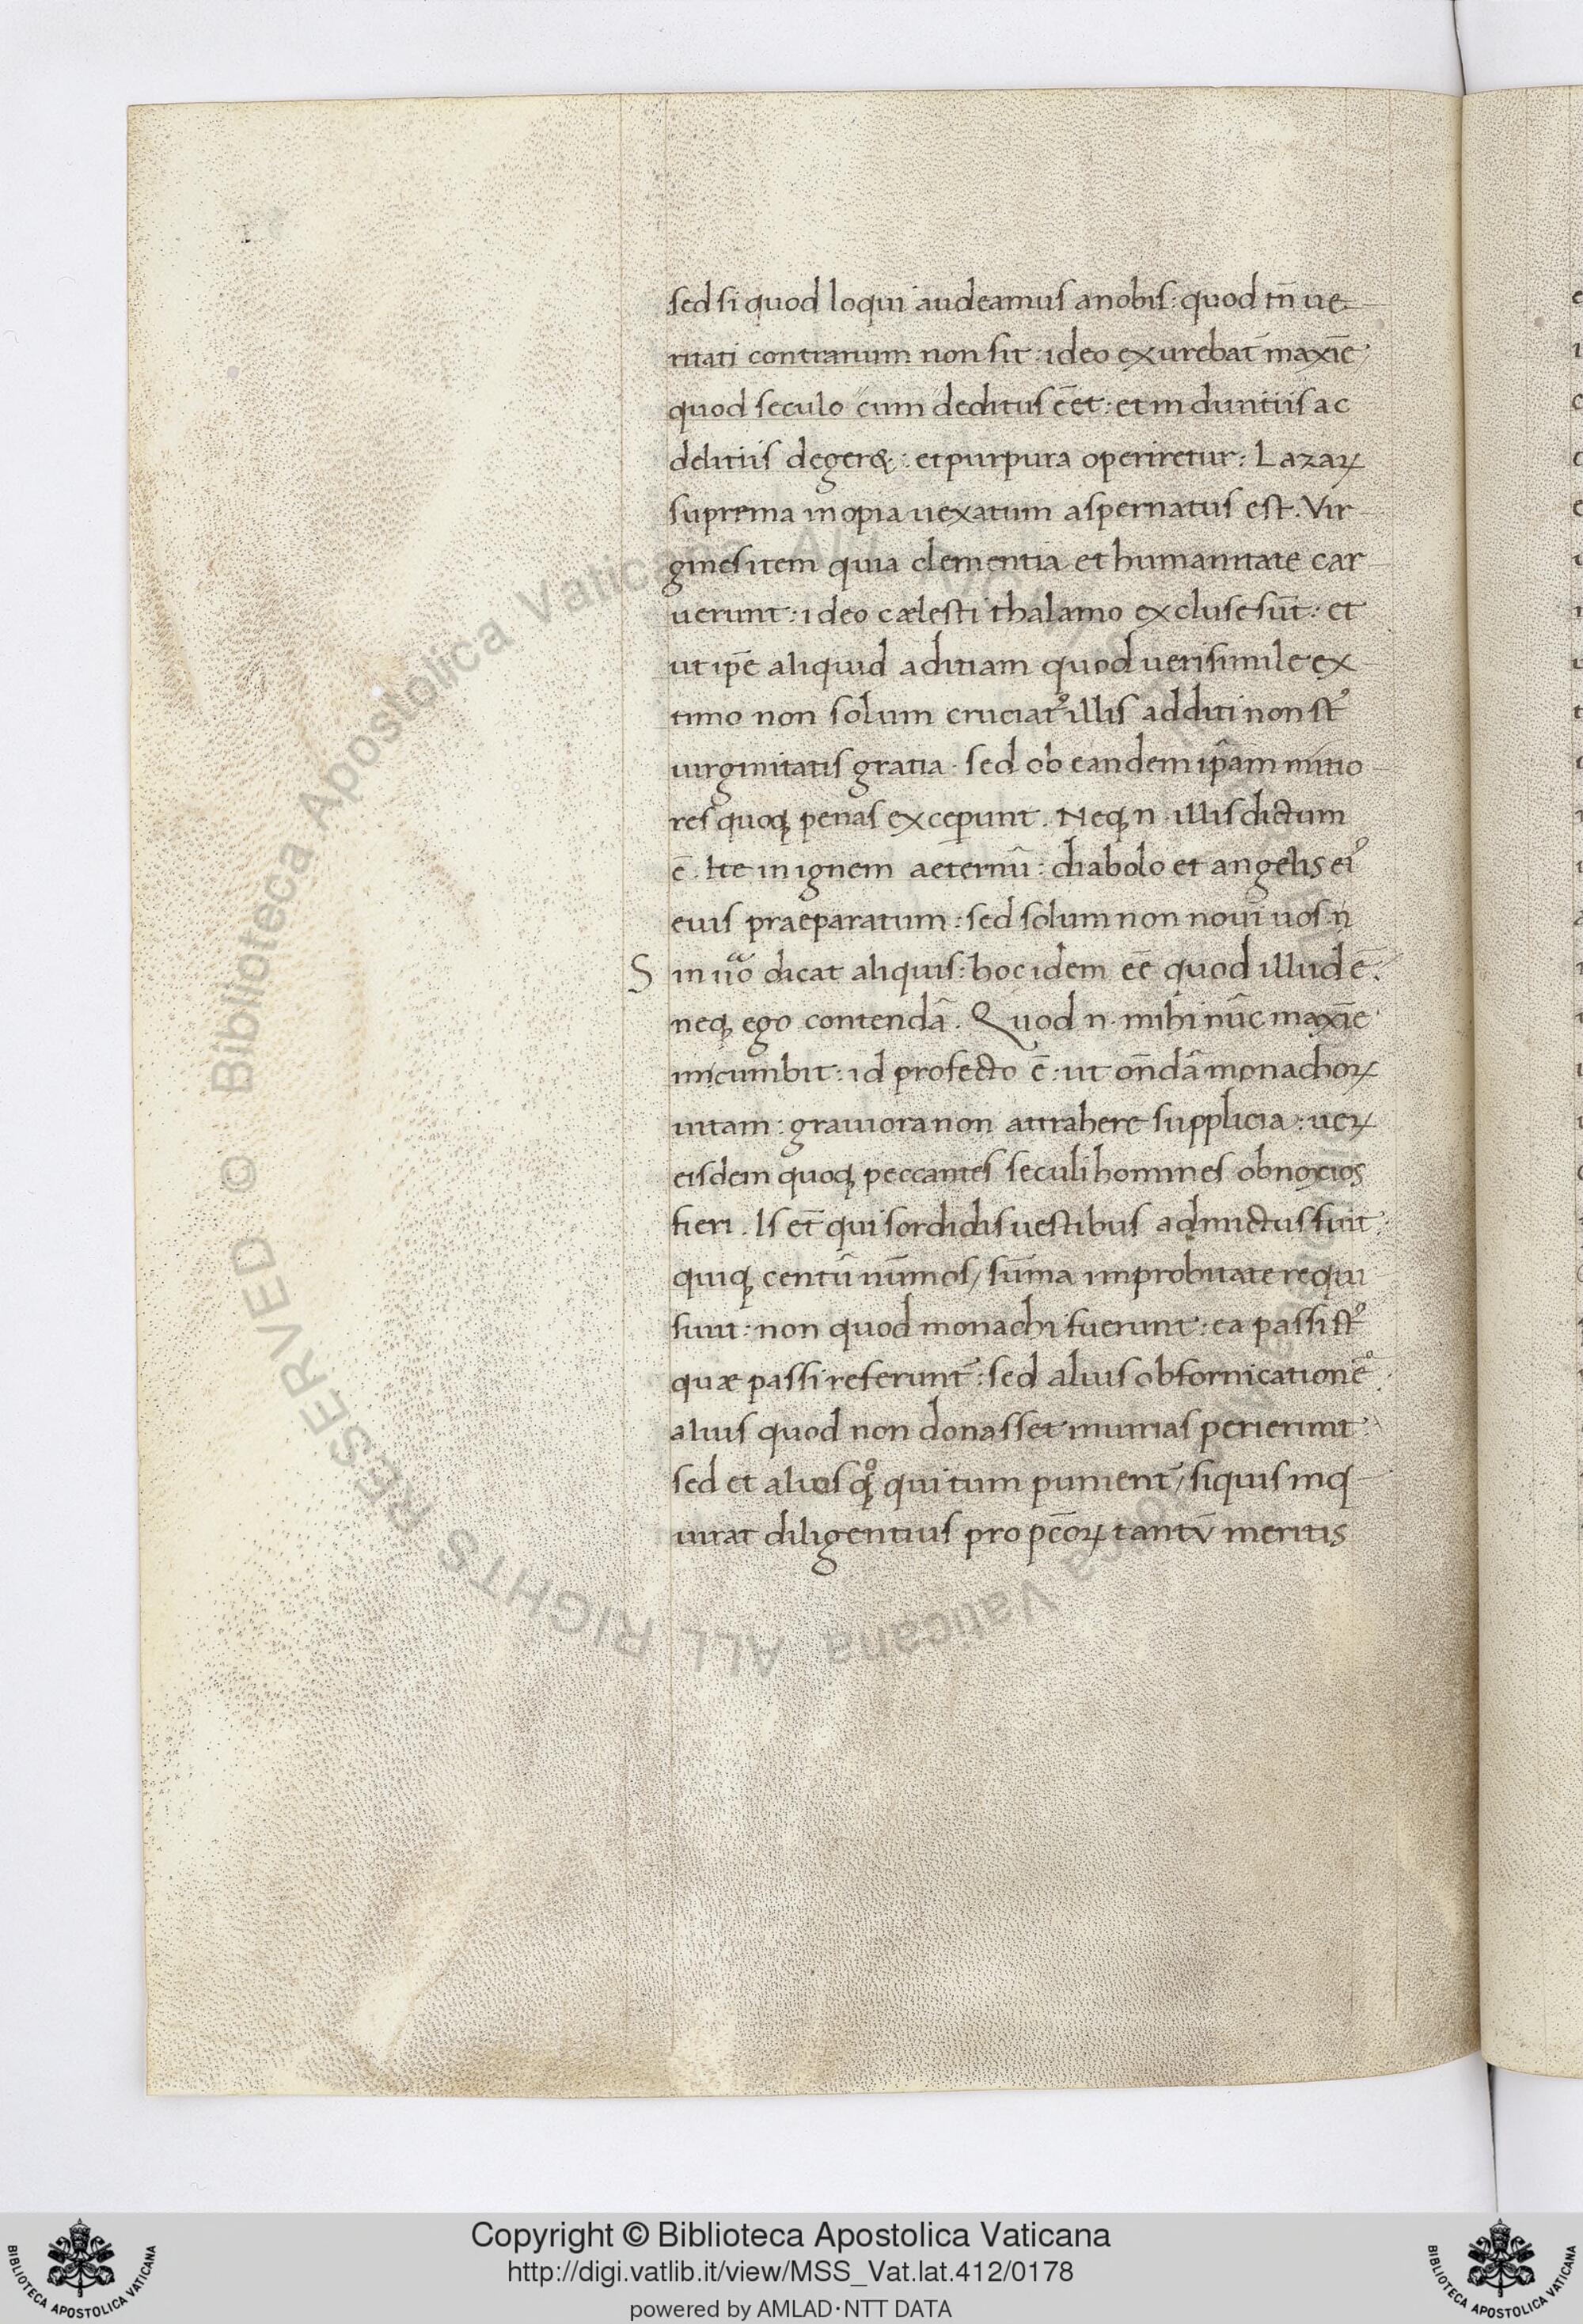 sed si quod loqui audeamus a nobis : quod tn̄ ue-
ritati contrarium non sit : ideo exurebat̄ maxīe
quod seculo cum deditus eēt : et in diuitiis ac
delitiis deger& : et purpura operiretur : Lazaꝝ
suprema inopia uexatum aspernatus est. Vir-
gines item quia clementia et humanitate car-
uerunt : ideo cælesti thalamo excluse sūt : et
ut ip̄e aliquid aditiam quod uerisimile ex-
timo non solum cruciatꝰ illis additi non st̄ꝰ
uirginitatis gratia · sed ob eandem ip̄am mitio-
res quoqꝫ penas exceperunt. Neqꝫ n̄ · illis dictum
ē. Ite in ignem aeternū : diabolo et angelis eiꝰ
euis praeparatum : sed solum non noui uos. n̄
S in uͣo dicat aliquis : hoc idem eē quod illud ē.
neqꝫ ego contendā. Quod n̄ · mihi nūc maxīe
incumbit : id profecto ē : ut on̄dā monachoꝝ
uitam : grauiora non attrahere supplicia : ueꝝ
eisdem quoqꝫ peccantes seculi homines obnoxios
fieri. Is et̄ qui sordidis uestibus admictus fuit :
quiqꝫ centū nūmos / sūma improbitate requi-
siuit : non quod monachi fuerunt : ea passi st̄ꝰ
quæ passi referunt̄ : sed alius ob fornicationē
alius quod non donasset iniurias perierunt :
sed et alios qꝫͦ qui tum punient̄ / siquis inq-
uirat diligentius pro pc̄oꝝ tantū meritis
Copyright © Biblioteca Apostolica Vaticana
http://digi.vatlib.it/view/MSS_Vat.lat.412/0178
powered by AMLAD·NTT DATA